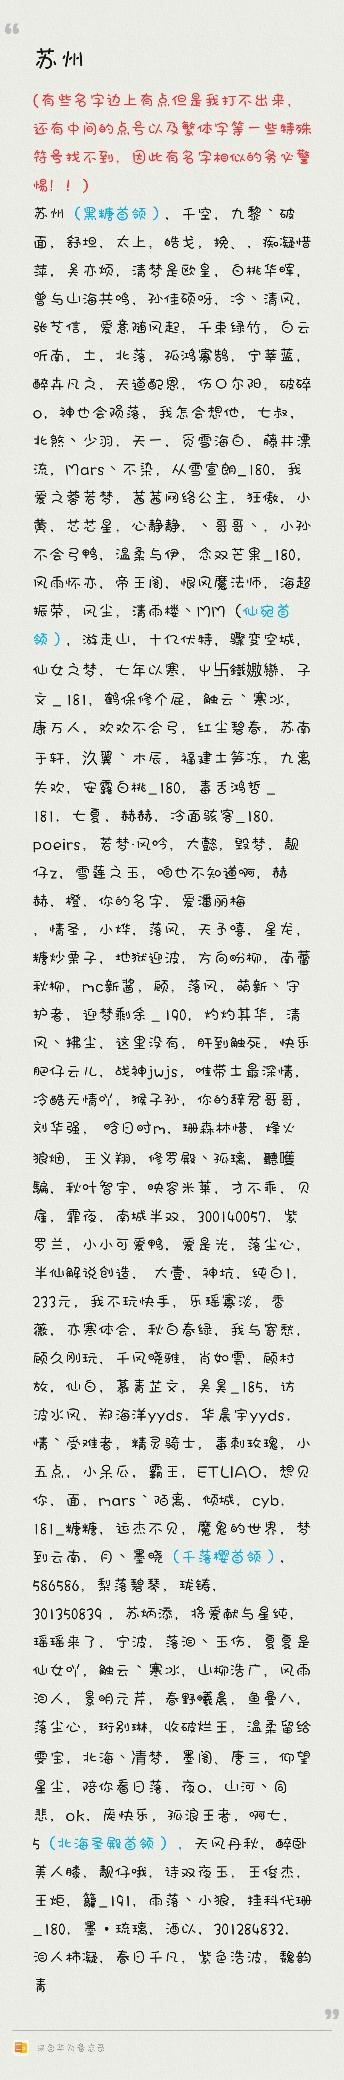 苏州
(有些名字边上有点但是我打不出来，
还有中间的点号以及繁体字等一些特殊
符号找不到，因此有名字相似的务必警
惕！！)
苏州（黑糖首领），千空，九黎丶破
面，舒坦，太上，皓戈，挽、，痴凝惜
萍，吴亦烦，清梦是欧皇，白桃华晖，
曾与山海共鸣，孙佳硕呀，冷丶清风，
张芝信，爱意随风起，千束绿竹，白云
听南，土，北落，孤鸿寡鹄，宁莘蓝，
醉卉凡之，天道配恩，伤〇尔阳，破碎
o，神也会陨落，我怎会想他，七叔，
北煞丶少羽，天一，觅雪海白，藤井漂
流，Mars丶不染，从雪宣朗_180，我
爱之蓉若梦，茜茜网络公主，狂傲，小
黄，芯芯星，心静静，丶哥哥丶，小孙
不会弓鸭，温柔与伊，念双芒果_180，
风雨怀亦，帝王阁，恨风魔法师，海超
振荣，风尘，清雨楼丶MM（仙宛首
领），游走山，十亿伏特，骤变空城，
仙女之梦，七年以寒，子
文＿181，鹤保修个屁，触云丶寒冰，
康万人，欢欢不会弓，红尘碧春，苏南
于轩，汣翼丶木辰，福建土笋冻，九离
失欢，安露白桃_180，毒舌鸿哲＿
181，七夏，赫赫，冷面骇客_180，
poeirs，若梦·风吟，大懿，毁梦，靓
仔z，雪莲之玉，咱也不知道啊，赫
赫，橙，你的名字，爱潘丽梅
，情圣，小烨，落风，天予嘻，星龙，
糖炒栗子，地狱迎波，方向盼柳，南蕾
秋柳，mc新酱，顾，落风，萌新丶守
护者，迎梦剩余＿190，灼灼其华，清
风丶拂尘，这里没有，肝到触死，快乐
肥仔云儿，战神jwjs，唯带土最深情，
冷酷无情吖，猴子孙，你的辞君哥哥，
刘华强， 晗日时m，珊森林惜，烽火
狼烟，王义翔，修罗殿丶孤璃，聽嘆
騙，秋叶智宇，映容米莱，才不乖，贝
雇，霏夜，南城半双，300140057，紫
罗兰，小小可爱鸭，爱是光，落尘心，
半仙解说创造， 大壹，神坑，纯白1，
233元，我不玩快手，乐瑶寡淡，香
薇，亦寒体会，秋白春绿，我与寄愁，
顾久刚玩，千风晓雅，肖如雲，顾村
放，仙白，慕青芷文，吴昊_185，访
波水风，郑海洋yyds，华晨宇yyds，
情丶受难者，精灵骑士，毒刺玫瑰，小
五点，小呆瓜，霸王，ETLIAO，想见
你，面，mars丶陌离，倾城，cyb，
181_糖糖，运杰不见，魔鬼的世界，梦
到云南，月丶墨晓（千落樱首领），
586586，梨落碧琴，珑铸，
301350839，苏炳添，将爱献与星纯，
瑶瑶来了，宁波，落泪丶玉伤，夏夏是
仙女吖，触云丶寒冰，山柳浩广，风雨
泪人，景明元芹，春野曦晨，鱼曼八，
落尘心，珩别琳，收破烂王，温柔留给
雯宝，北海丶凊梦，墨阁，唐三，仰望
星尘，陪你看日落，夜o，山河丶同
悲，ok，庾快乐，孤浪王者，啊七，
5（北海圣殿首领），天风丹秋，醉卧
美人膝，靓仔哦，诗双夜玉，王俊杰，
王炬，籬_191，雨落丶小狼，挂科代珊
_180，墨·琉璃，酒以，301284832，
泪人柿凝，春日千凡，紫色浩波，魏韵
青
来自华为备忘录